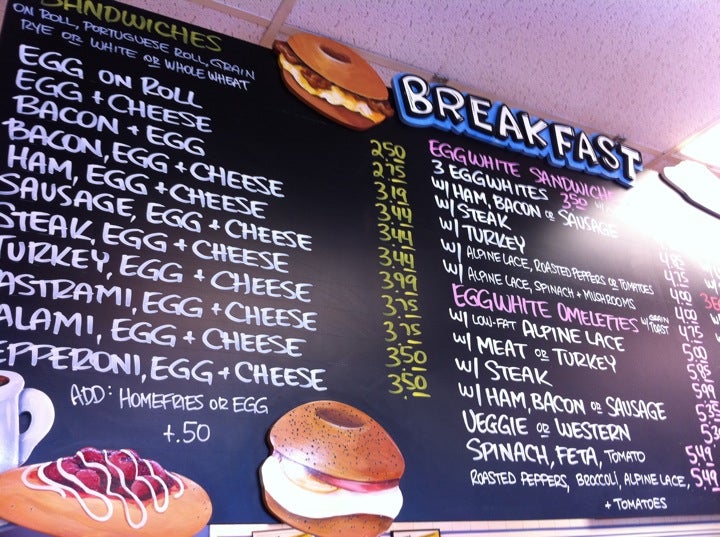 SANDWICHES
ON ROLL, PORTUGUESE ROLL, GRAIN
RYE OR WHITE OR WHOLE WHEAT
EGG ON ROLL 2.50
EGG + CHEESE 2.75
BACON + EGG 3.19
BACON, EGG + CHEESE 3.44
HAM, EGG + CHEESE 3.44
SAUSAGE, EGG + CHEESE 3.44
STEAK, EGG + CHEESE 3.99
TURKEY, EGG + CHEESE 3.75
ASTRAMI, EGG + CHEESE 3.75
ALAMI, EGG + CHEESE 3.50
EPPERONI, EGG + CHEESE 3.50
ADD: HOMEFRIES OR EGG
+.50
BREAKFAST
EGGWHITE SANDWICHES
3 EGGWHITES 3.50
W/ HAM, BACON OR SAUSAGE
W/ STEAK
W/ TURKEY
W/ ALPINE LACE, ROASTED PEPPERS OR TOMATOES
W/ ALPINE LACE, SPINACH + MUSHROOMS
EGGWHITE OMELETTES W/ GRAIN TOAST
W/ LOW-FAT ALPINE LACE
W/ MEAT OR TURKEY
W/ STEAK
W/ HAM, BACON OR SAUSAGE
VEGGIE OR WESTERN
SPINACH, FETA, TOMATO 5.49
ROASTED PEPPERS, BROCCOLI, ALPINE LACE, 5.49
+ TOMATOES